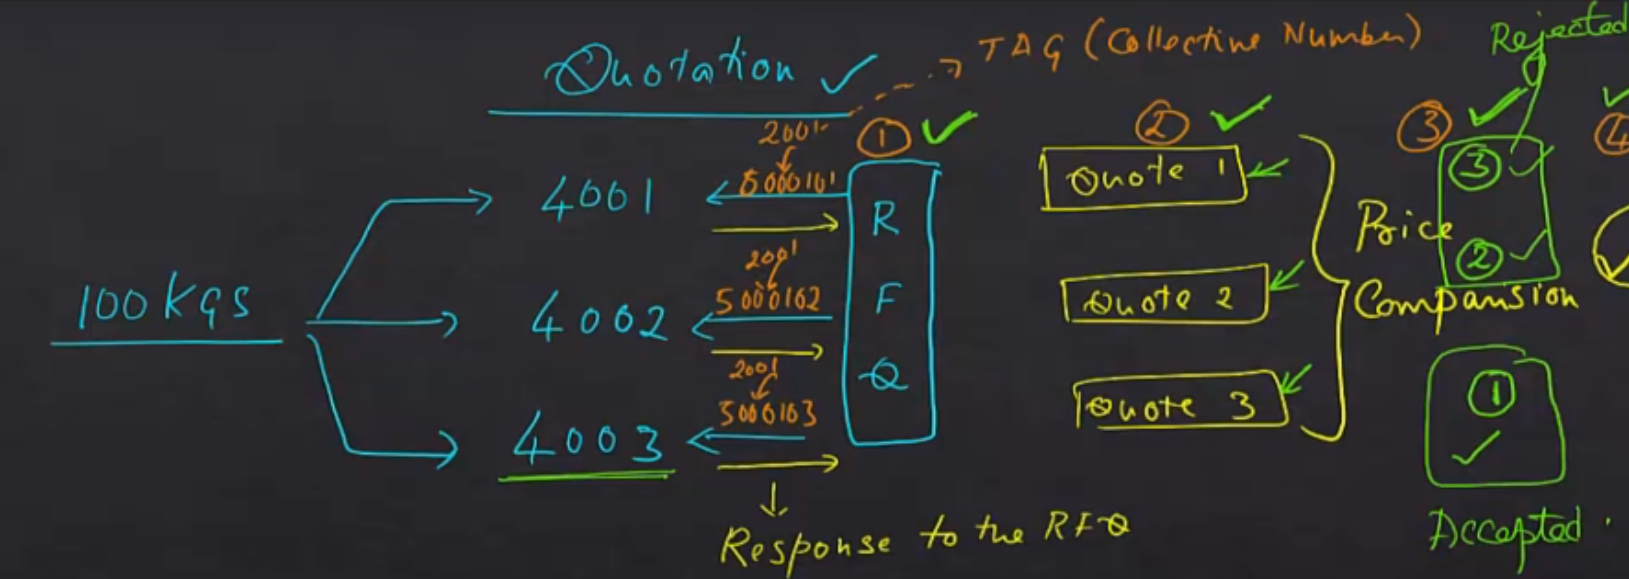 Quotation
TAG (Collective Number)
Rejected
1
2
3
4
2001
5000101
4001
Quote 1
3
R
Price
2001
2
100 KGS
4002
5000102
F
Quote 2
Comparision
2001
Q
4003
5000103
Quote 3
1
Response to the RFQ
Accepted